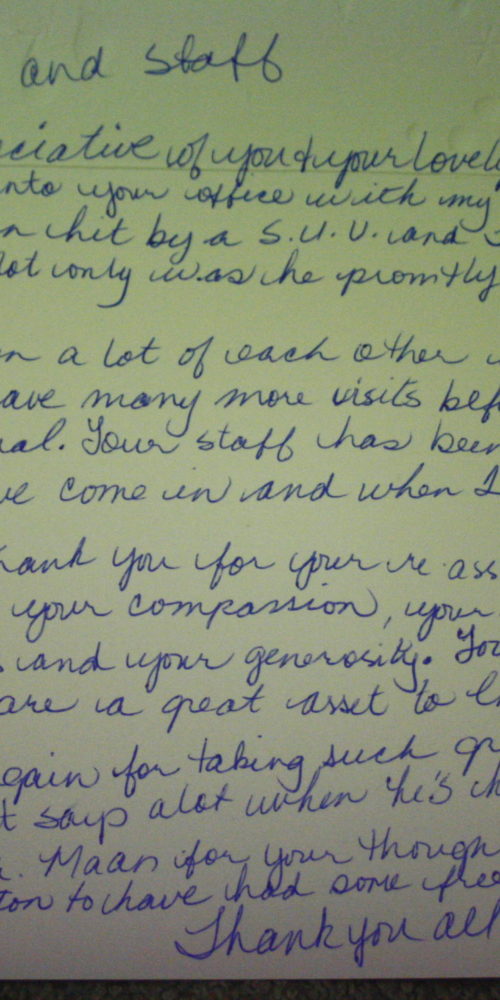 and staff
ciative of you & your lovel
nto your office with my
n hit by a S.U.V. and
Not only was he promtly
n a lot of each other
ave many more visits bef
al. Your staff has been
ve come in and when I
hank you for your re-ass
your compassion, your
s and your generosity. You
are a great asset to
again for taking such gr
t says alot when he's
Maan for your though
ton to have had some free
Thank you all